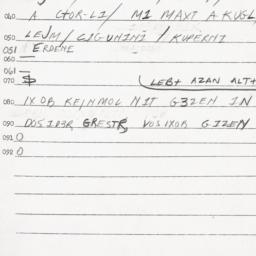 040 A GTOR-LI/ M1 MAXT A KUSL
050 LEJM/ CIGUNINI / KUPERNI
051 ERDENE
060 —
061 —
070
LEB+ AZAN ALT+
080 IXOB KEJNMOL NIT G3ZEN IN
090 DOSIP3R GRESTR, VOSIXOB GIZEN
091 0
092 0